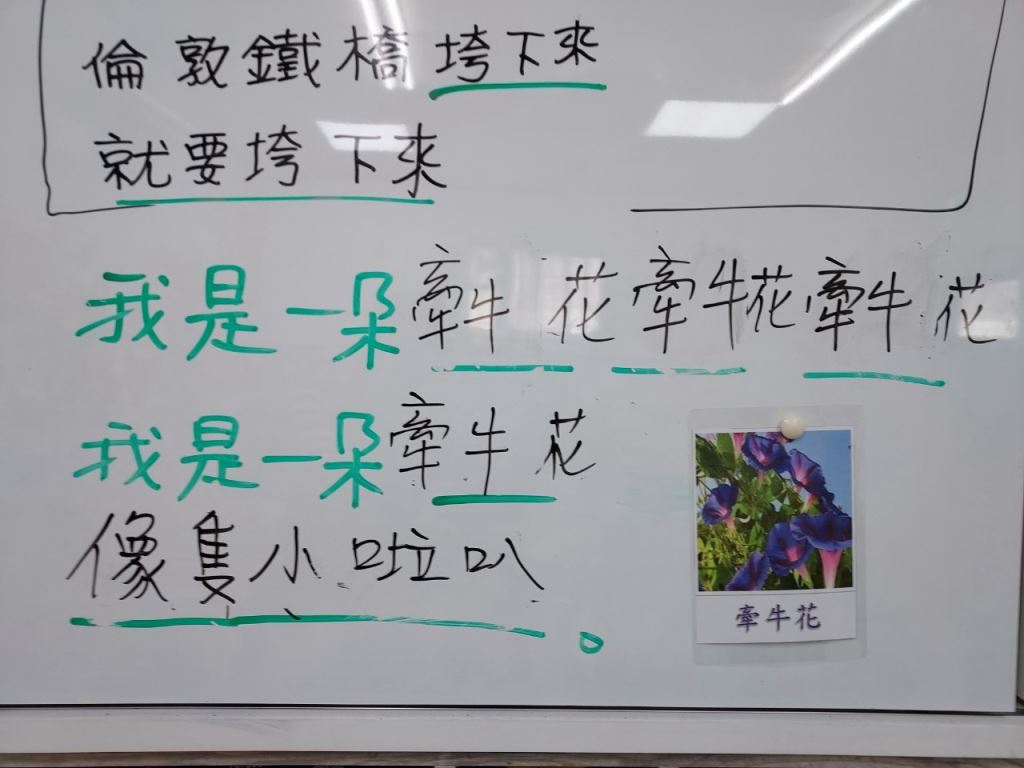 倫敦鐵橋垮下來
就要垮下來
我是一朵牽牛花牽牛花牽牛花
我是一朵牽牛花
像隻小啦叭。
牽牛花